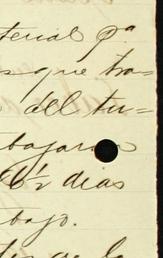 terial pª
s que tra=
del tu=
bajaron
6½ dias
tbajo.